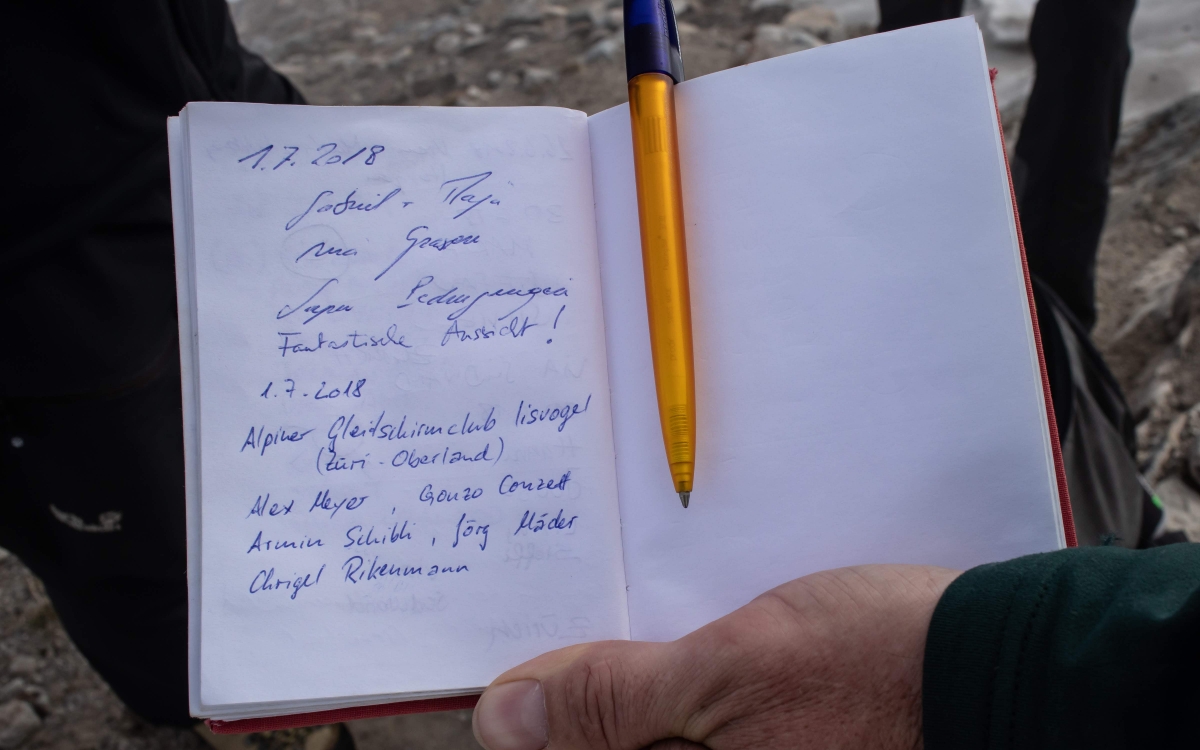 1.7.2018
Gabriel + Maja
Graven
Super Bedingungen
Fantastische Aussicht!
1.7.2018
Alpiner Gleitschirmclub Iisvogel
(Züri-Oberland)
Alex Meyer, Gonzo Conzett
Armin Schibli, Jörg Mäder
Chrigel Rikenmann